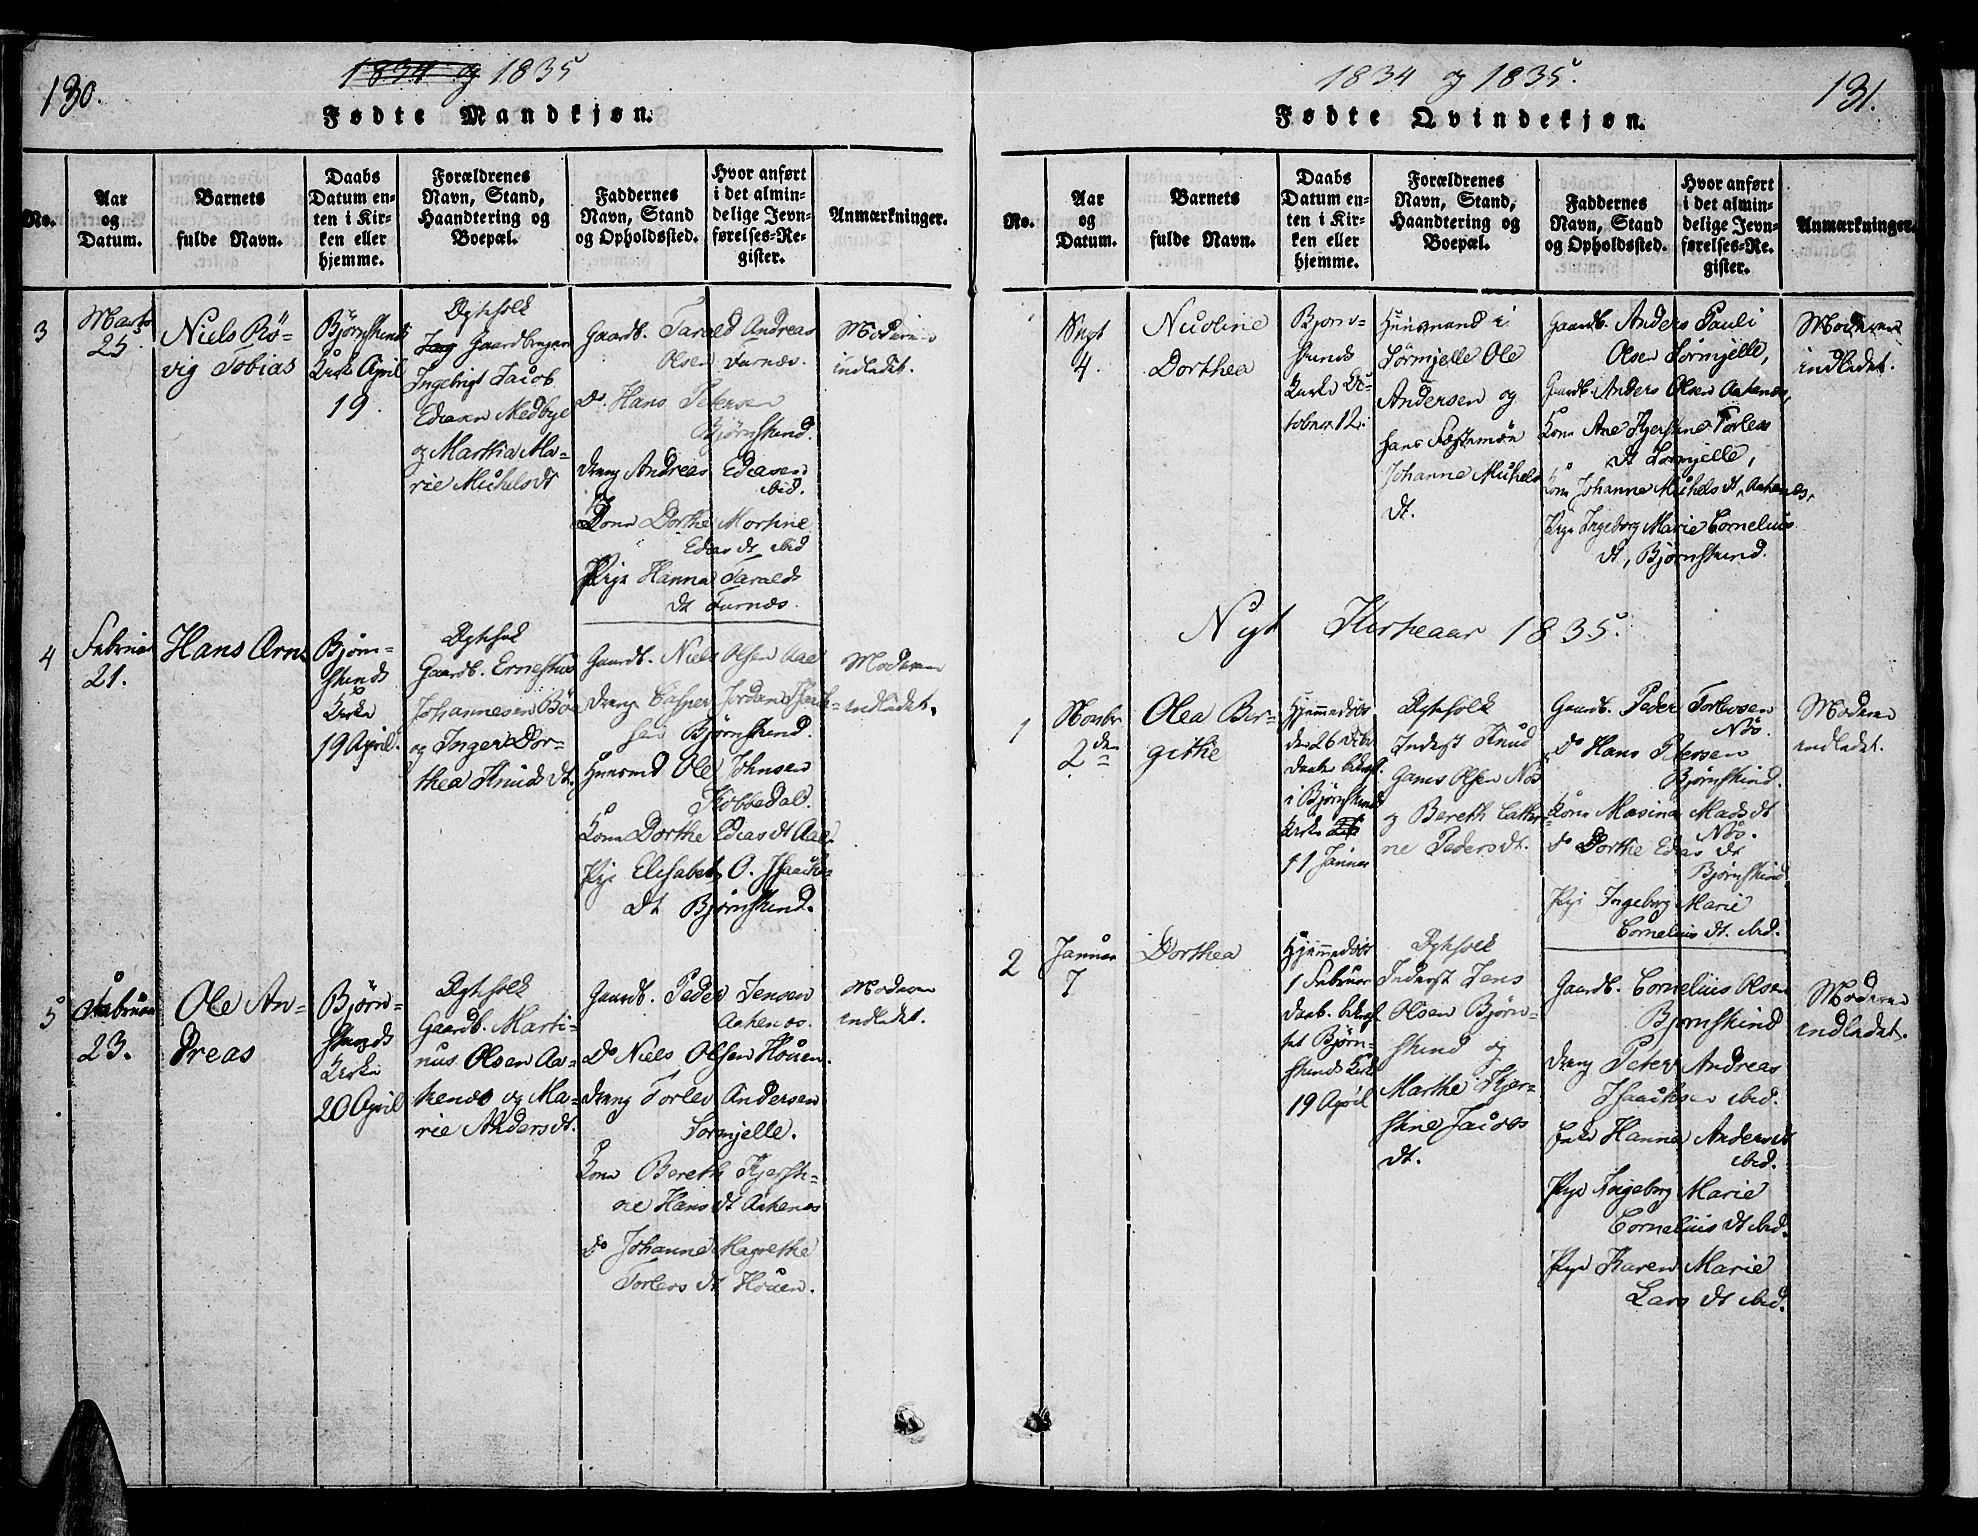 130.
1834 og 1835
Fødte Mandkjøn.
No.
Aar
og
Datum.
Barnets
fulde Navn.
Daabs
Datum en-
ten i Kir-
ken eller
hjemme.
Forældrenes
Navn, Stand,
Haandtering og
Boepæl.
Faddernes
Navn, Stand
og Opholdssted.
Hvor anført
i det almin-
delige Jevn-
førelses-Re-
gister.
Anmærkninger.
3
Marts
25.
Niels Rø-
vig Tobias
Bjørnskinds
Kirke April
19.
Ægtefolk
Gaardbruger
Ingebrigt Jacob
Ediasen Medbye
og Martha Ma-
rie Michelsdt
Gaardb. Tarald Andreas
Olsen Furnæs.
Do. Hans Petersen
Bjørnskind.
Dreng Andreas Ediasen
ibid.
Kone Dorthe Martine
Edias dt ibid
Pige Hanna Taralds
dt Furnæs.
Moderen
indladet.
4
Februar
21.
Hans Arn
Bjørn-
skinds
Kirke
19 April.
Ægtefolk
Gaardb. Ernestus
Johannesen Bø
og Inger Dor-
thea Knuds dt.
Gaardb. Niels Olsen Aae
Dreng Casper Jordan Isach-
sen Bjørnskind.
Huusmd Ole Johnsen
Kobbedal.
Kone Dorthe Edias dt Aae
Pige Elisabet O. Isaachs
dt Bjørnskind.
Moderen
indladet.
5
Februar
23.
Ole An-
dreas
Bjørn-
skinds
Kirke
20 April
Ægtefolk
Gaardb. Marti-
nus Olsen Aa-
kenes og Ma-
rie Andersdt.
Gaardb. Peder Jensen
Aakenes.
Do Niels Olsen Houen.
Dreng Torlev Andersen
Sørmjelle.
Kone Bereth Kjersti-
ne Hans dt Aakenes
Do Johanne Magrethe
Torlevs dt Houen.
Moderen
indladet.
131.
1834 og 1835.
Fødte Qvindekjøn.
No.
Aar
og
Datum.
Barnets
fulde Navn.
Daabs
Datum en-
ten i Kir-
ken eller
hjemme.
Forældrenes
Navn, Stand,
Haandtering og
Boepæl.
Faddernes
Navn, Stand
og Opholdssted.
Hvor anført
i det almin-
delige Jevn-
førelses-Re-
gister.
Anmærkninger.
Sept
4.
Nicoline
Dorthea
Bjørn-
skinds
Kirke Oc-
tober 12.
Huusmand i
Sørmjelle Ole
Andersen og
hans Fæstemøe
Johanne Michels
dt.
Gaardb. Anders Pauli
Olsen Sørmjelle,
Gaardb. Anders Olsen Aakenes,
Kone Ane Kjerstine Torlevs
dt Sørmjelle,
Kone Johanne Michels dt, Aakenes,
Pige Ingeborg Marie Cornelius
dt, Bjørnskind.
Moderen
indladet.
Nyt Kirkeaar 1835.
1
Novbr
2den
Olea Ber-
githe
Hjemmedøbt
den 26 Decbr
Daaben bekræft.
i Bjørnskinds
Kirke
11 Januar
Ægtefolk
Inderst Knud
Olsen Nøs
og Bereth Cathri-
ne Pedersdt.
Gaardb. Peder Torlevsen
Nøs.
Do Hans Petersen
Bjørnskind.
Kone Masina Mads dt
Nøs.
Do Dorthe Edias dt
Bjørnskind
Pige Ingeborg Marie
Cornelius dt. ibid.
Moderen
indladet.
2
Januar
7
Dorthea
Hjemmedøbt
1 Februar
Daab. bekræf-
tet Bjørn-
skinds Kirke
19 April
Ægtefolk
Inderst Jens
Olsen Bjørn-
skind og
Marthe Kjer-
stine Jacobs
dt.
Gaardb. Cornelius Olsen
Bjørnskind
Dreng Peter Andreas
Isaachsen ibid.
Enke Hanna Andersdt
ibid.
Pige Ingeborg Marie
Cornelius dt ibid.
Pige Karen Marie
Lars dt ibid.
Moderen
indladet.